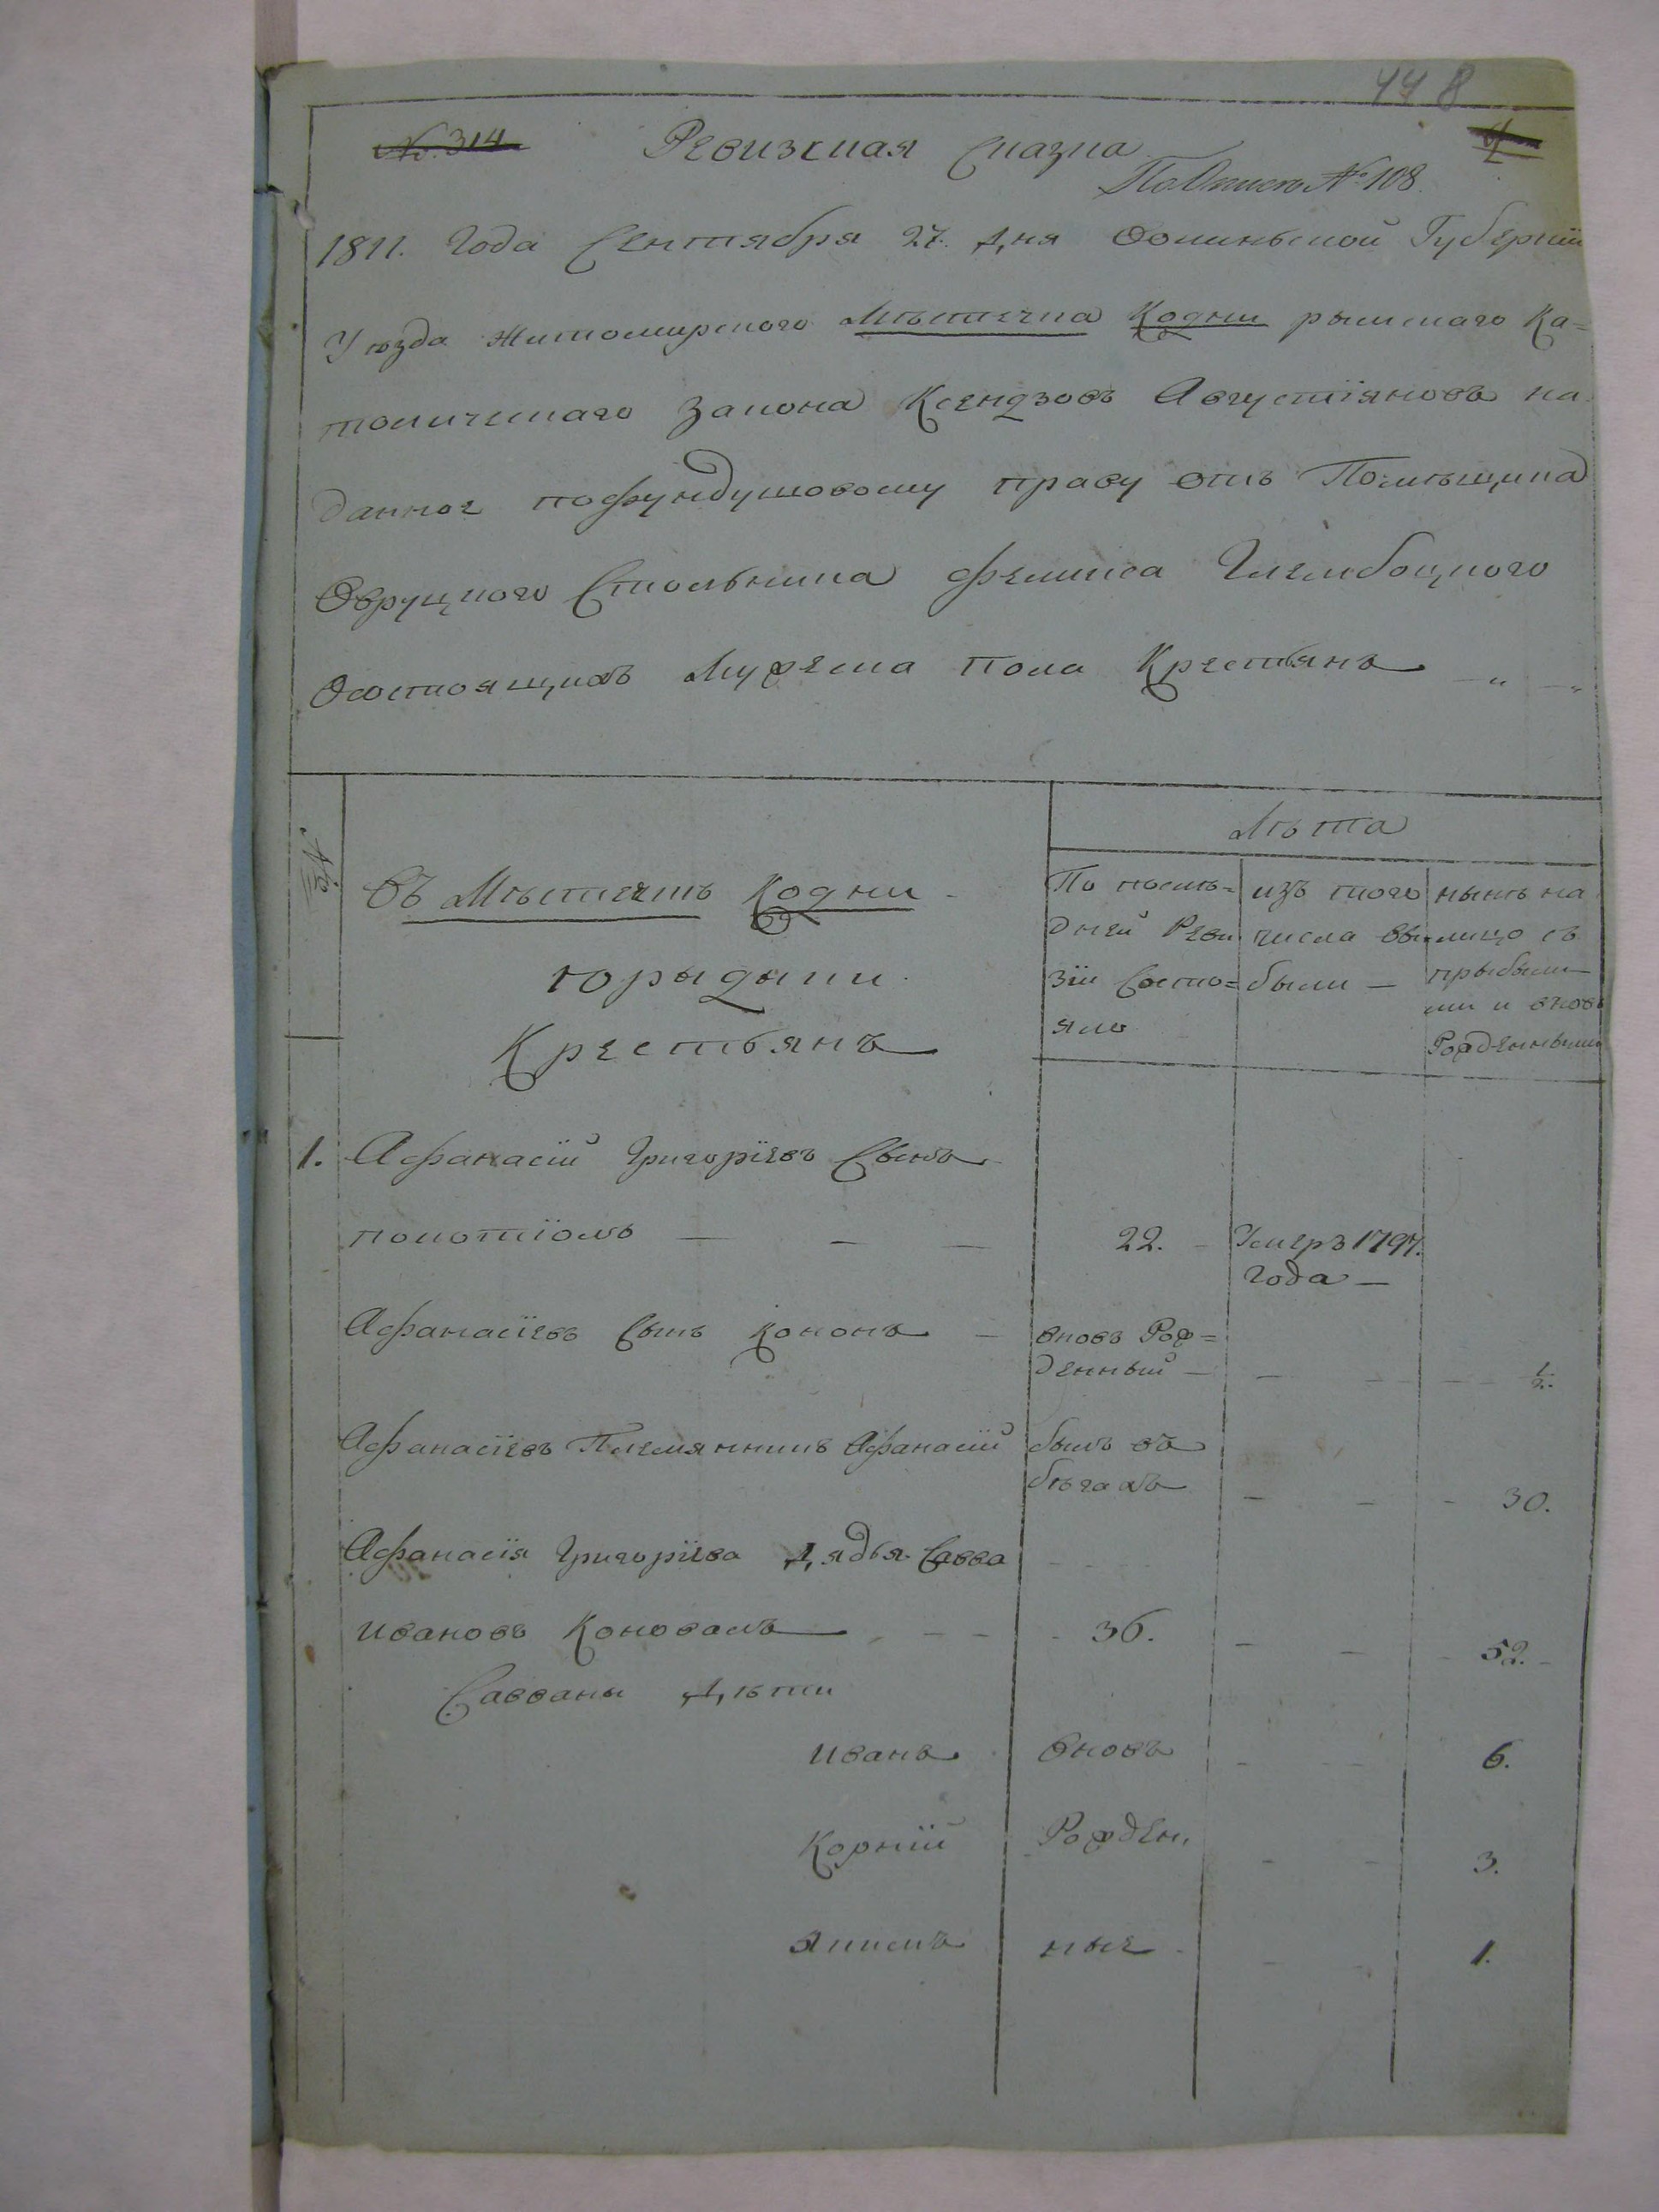 448
№ 314
Ревизская Сказка
По Описи № 108.
1811. Года Сентября 27. Дня Волиньской Губернїи
Уѣзда Житомирского Мѣстечка Кодни рымскаго Ка=
толическаго Закона Ксендзовъ Августїяновъ на
данное пофундушовому праву отъ Помѣщика
Овруцкого Стольника Феликса Глембоцкого
Осостоящихъ Мужеска пола Крестьянъ
№
Въ Мѣстечкѣ Кодни
юрыдыки
Крестьянъ
Лѣта
По послѣ=
дней Реви
зїи Состо=
яло
изъ того
числа вы=
были —
нынѣ на
лицо съ
прыбылы
ми и вновь
Рожденными
1. Афанасїй Григорїевъ Сынъ
полотїомъ — — — 22. — Умеръ 1797.
Года —
Афанасїевъ Сынъ Кононъ — вновь Рож=
денный — — — 1/2.
Афанасїевъ Племянникъ Афанасїй былъ въ
бѣгахъ — — — 30.
Афанасїя Григорїева Дядья Савва
Ивановъ Коновалъ — — — 36. — — — 52. —
Савваны Дѣти
Иванъ вновь — — 6.
Корнїй Рожден, — — 3.
Якимъ ные — — 1.